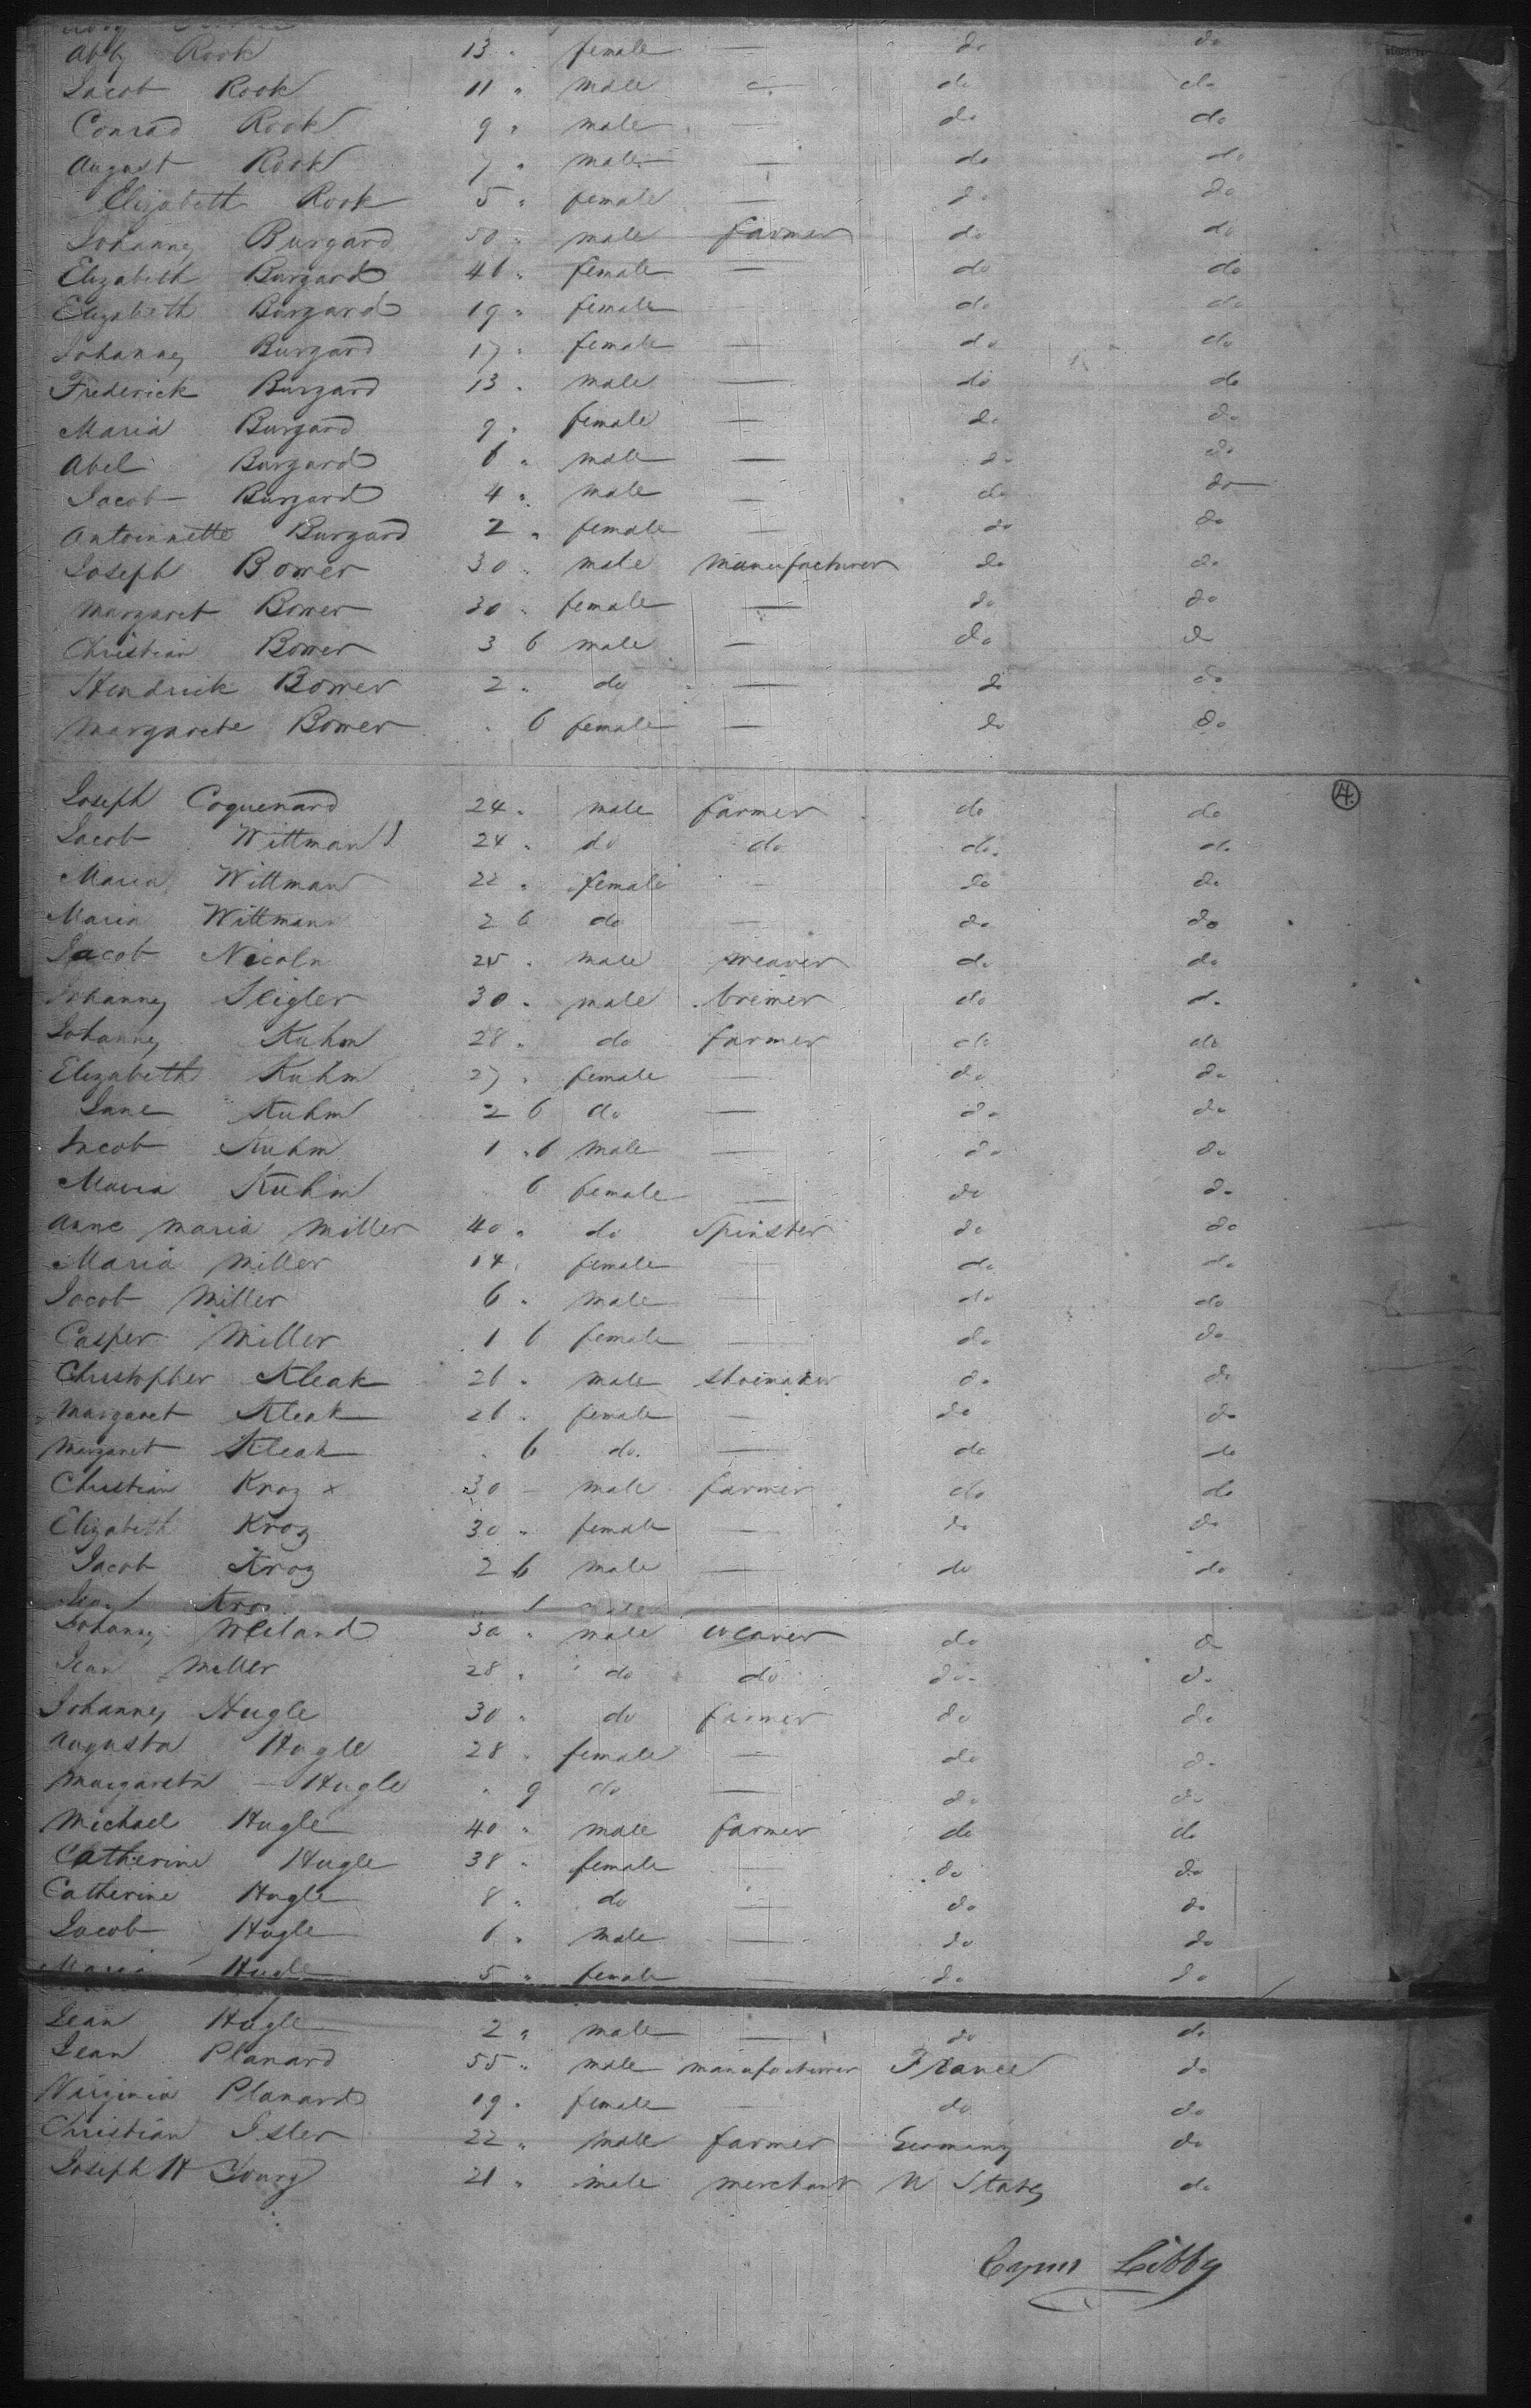 Abby Rook 13 " female — do do
Jacob Rook 11 " male — do do
Conrad Rook 9 " male — do do
August Rook 7 " male — do do
Elizabeth Rook 5 " female — do do
Johannes Burgard 50 " male farmer do do
Elizabeth Burgard 46 " female — do do
Elizabeth Burgard 19 " female do do
Johannes Burgard 17 " female — do do
Frederick Burgard 13 " male — do do
Maria Burgard 9 " female — do do
Abel Burgard 6 " male — do do
Jacob Burgard 4 " male — do do
Antoinnette Burgard 2 " female — do do
Joseph Bower 30 " male manufacturer do do
Margaret Bower 30 " female — do do
Christian Bower 3 6 male — do do
Hendrick Bower 2 " do — do do
Margarete Bower " 6 female — do do
4
Joseph Coquenard 24 " male farmer do do
Jacob Wittman 24 " do do do do
Maria Wittman 22 " female — do do
Maria Wittman 2 6 do — do do
Jacob Nicola 25 " male weaver do do
Johannes Seigler 30 " male do do
Johannes Kuhm 28 " do farmer do do
Elizabeth Kuhm 27 " female — do do
Jane Kuhm 2 6 do — do do
Jacob Kuhm 1 6 male — do do
Maria Kuhm " 6 female — do do
Anne Maria Miller 40 " do Spinster do do
Maria Miller 14 " female — do do
Jacob Miller 6 " male — do do
Casper Miller 1 6 female — do do
Christopher Kleak 26 " male shoemaker do do
Margaret Kleak 26 " female — do do
Margaret Kleak " 6 do — do do
Christian Kroz x 30 – male farmer do do
Elizabeth Kroz 30 " female — do do
Jacob Kroz 2 6 male — do do
Johannes Weiland 30 " male weaver do do
Jean Miller 28 " do do do do
Johannes Hugle 30 " do farmer do do
Augusta Hugle 28 " female — do do
Margareta Hugle " 9 do — do do
Michael Hugle 40 " male farmer do do
Catherine Hugle 38 " female — do do
Catherine Hugle 8 " do — do do
Jacob Hugle 6 " male — do do
Maria Hugle 5 " female — do do
Jean Hugle 2 " male — do do
Jean Planard 55 " male manufacturer France do
Virginia Planard 19 " female — do do
Christian Isler 22 " male farmer Germany do
Joseph H Young 21 " male merchant U States do
Cyrus Libby